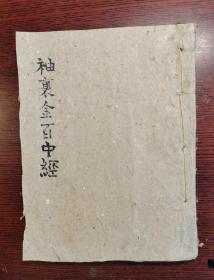 袖裏金百中經